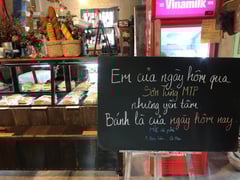 Vinamilk
Em của ngày hôm qua
Sơn Tùng MTP
nhưng yên tâm
Bánh là của ngày hôm nay